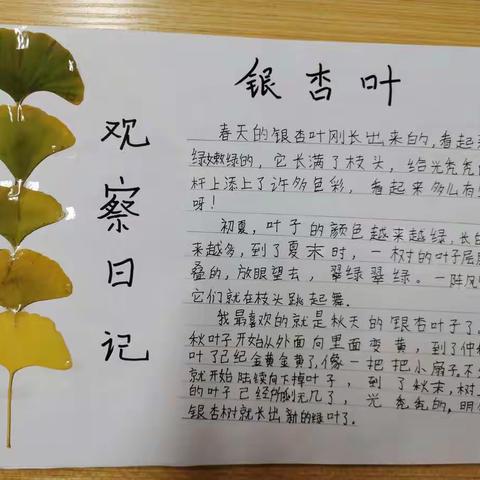 银杏叶
观察日记
春天的银杏叶刚长出来的,看起来
绿嫩绿的,它长满了枝头,给光秃秃的
杆上添上了许多色彩,看起来多么有
呀!
初夏,叶子的颜色越来越绿,长的
来越多,到了夏末时,一树的叶子层层
叠的,放眼望去,翠绿翠绿。一阵风
它们就在枝头跳起舞.
我最喜欢的就是秋天的银杏叶子了。
秋叶子开始从外面向里面变黄,到了仲秋
叶了已纪金黄金黄了,像一把把小扇子不
就开始陆续向下掉叶子,到了秋末,树上
的叶子已经所剩无几了,光秃秃的,明
银杏树就长出新的绿叶了.